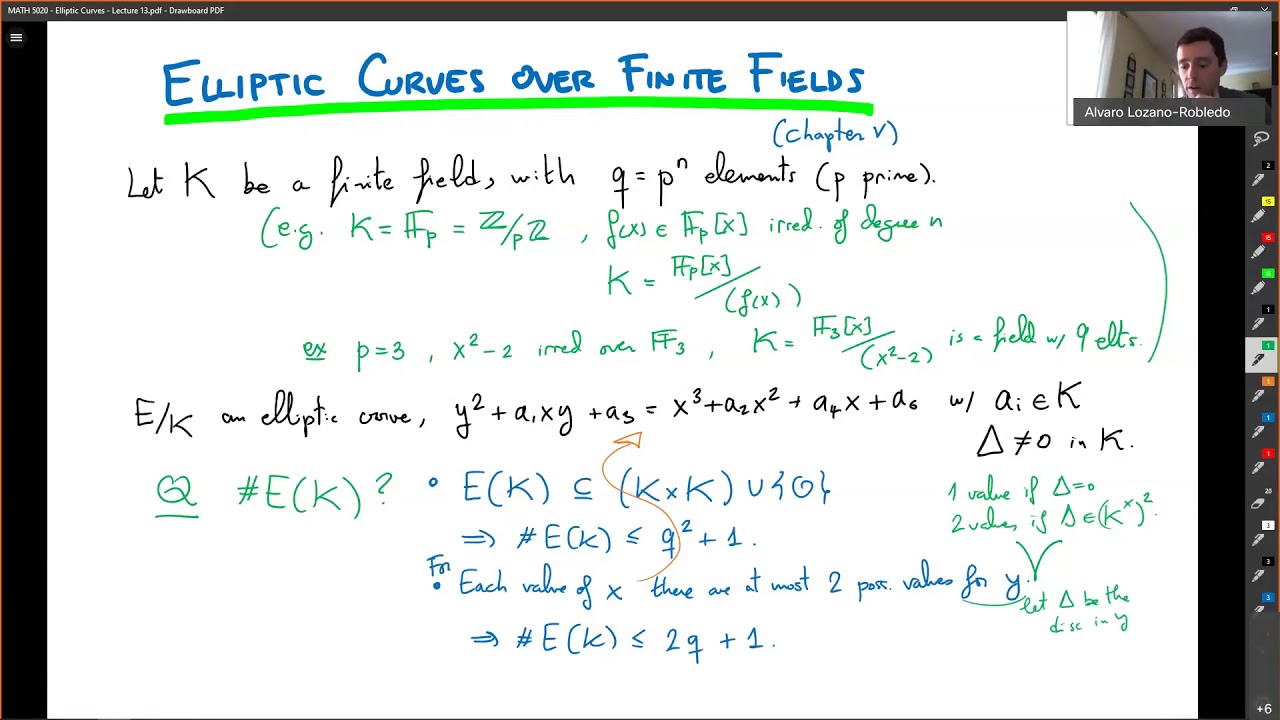 MATH 5020 - Elliptic Curves - Lecture 13.pdf - Drawboard PDF
Alvaro Lozano-Robledo
ELLIPTIC CURVES OVER FINITE FIELDS
(Chapter V)
Let K be a finite field, with q = pⁿ elements (p prime).
(e.g. K = 𝔽p = ℤ/pℤ , f(x) ∈ 𝔽p[x] irred. of degree n
K = 𝔽p[x]/(f(x)) )
ex p=3 , x²-2 irred over 𝔽₃ , K = 𝔽₃[x]/(x²-2) is a field w/ 9 elts.
E/K an elliptic curve, y² + a₁xy + a₃ = x³ + a₂x² + a₄x + a₆ w/ aᵢ ∈ K
Δ ≠ 0 in K.
Q #E(K)? • E(K) ⊆ (K×K) ∪ {O}
⇒ #E(K) ≤ q² + 1.
1 value if Δ=0
2 values if Δ∈(K^×)².
• For Each value of x there are at most 2 poss. values for y.
let Δ be the
disc in y
⇒ #E(K) ≤ 2q + 1.
2
15
15
15
1
1
1
1
1
20
3
3
3
+6